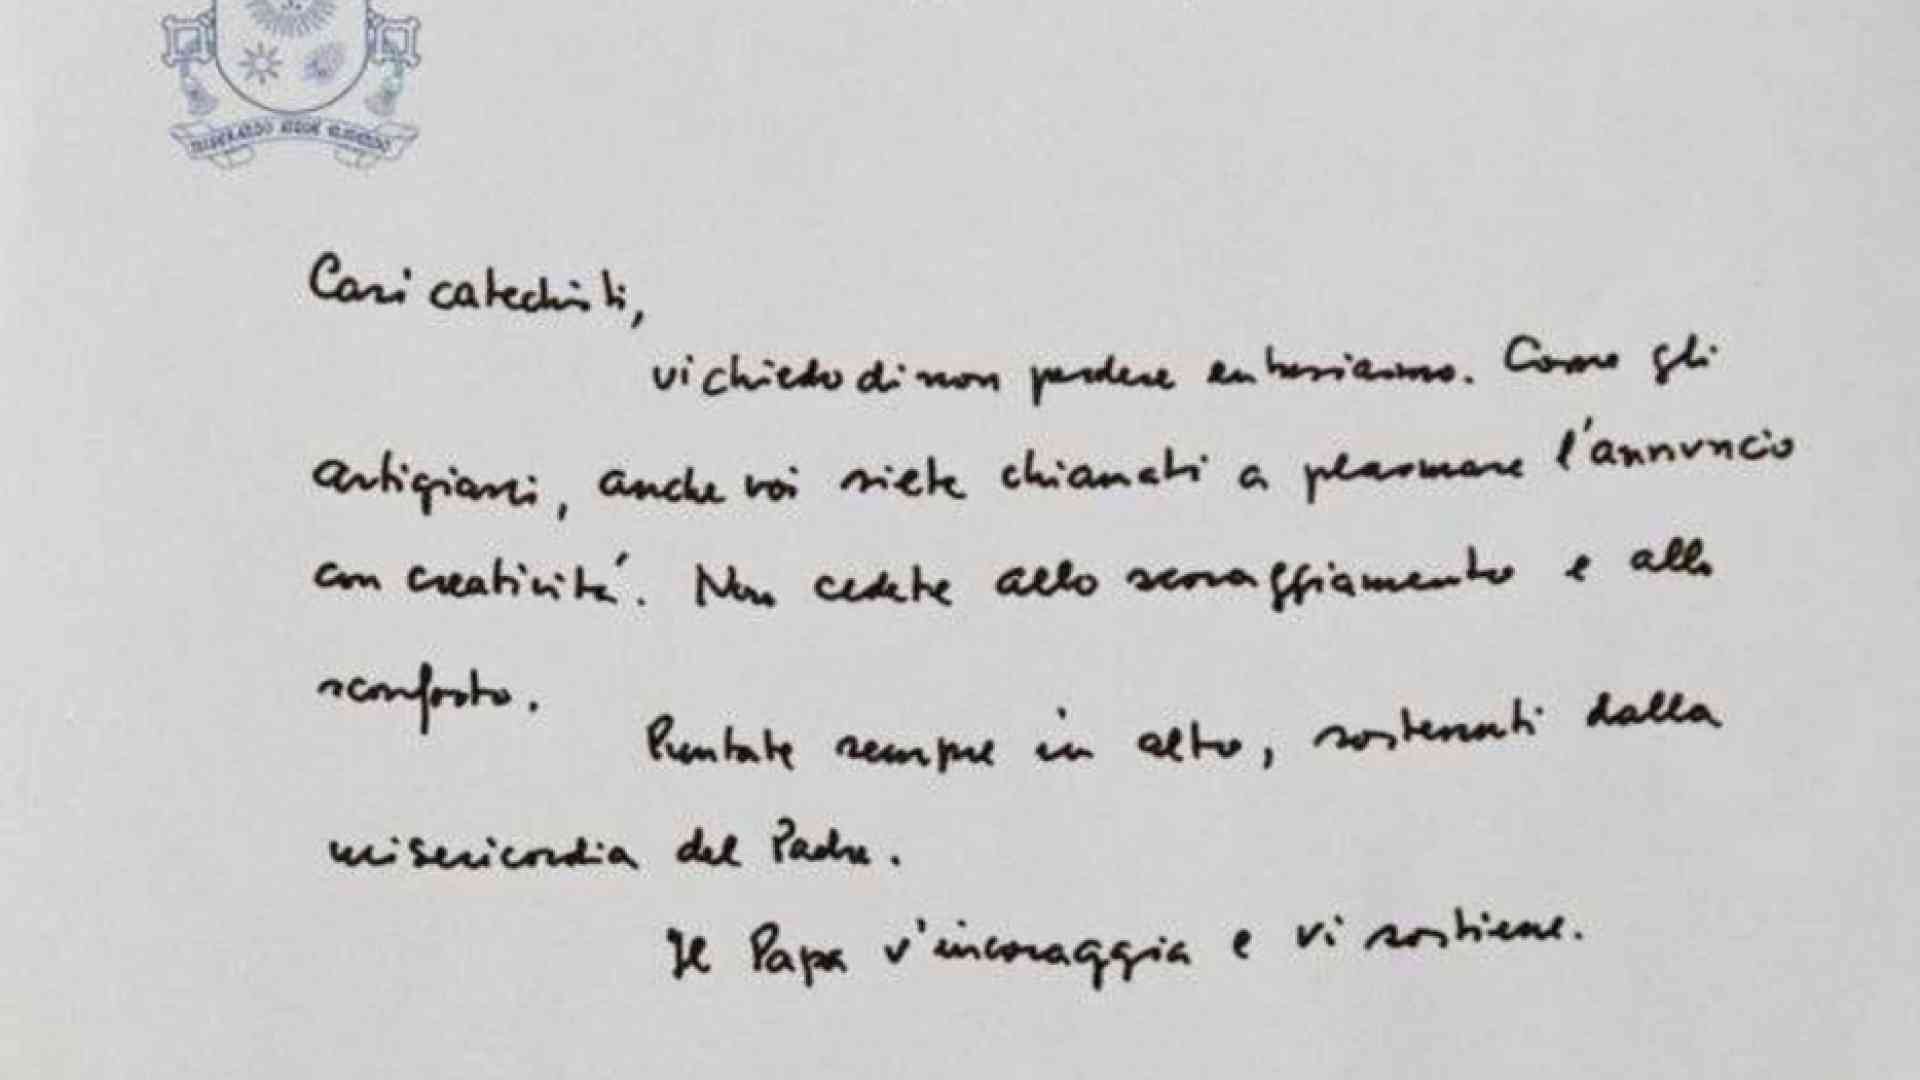 MISERANDO ATQUE ELIGENDO
Cari catechisti,
vi chiedo di non perdere entusiasmo. Come gli
artigiani, anche voi siete chiamati a plasmare l'annuncio
con creatività. Non cedete allo scoraggiamento e allo
sconforto.
Puntate sempre in alto, sostenuti dalla
misericordia del Padre.
Il Papa v'incoraggia e vi sostiene.